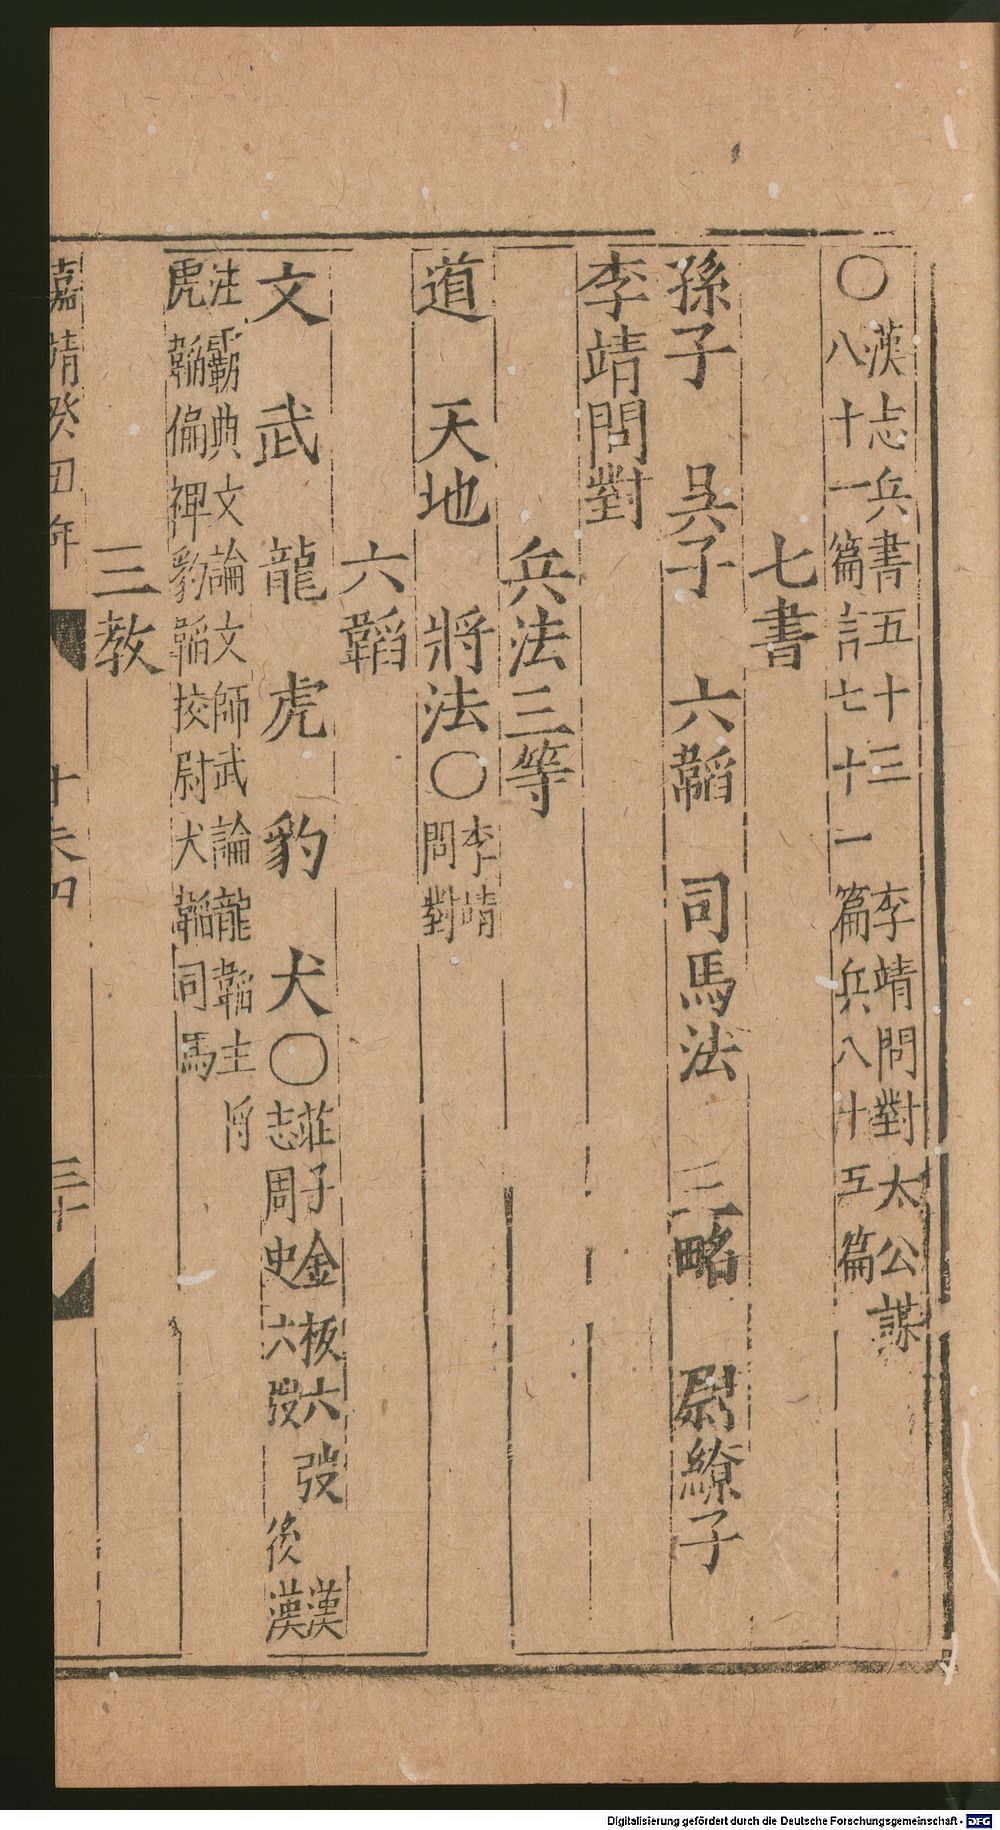 〇漢志兵書五十三　李靖問對太公謀
八十一篇言七十一篇兵八十五篇
七書
孫子　吳子　六韜　司馬法　三略　尉繚子
李靖問對
兵法三等
道　天地　將法〇李靖
問對
六韜
文　武　龍　虎　豹　犬〇莊子金板六弢　漢
志周史六弢　後漢
注霸典文論文師武論龍韜主將
虎韜偏裨豹韜挍尉犬韜司馬
三教
嘉靖癸丑年　三十
Digitalisierung gefördert durch die Deutsche Forschungsgemeinschaft - DFG